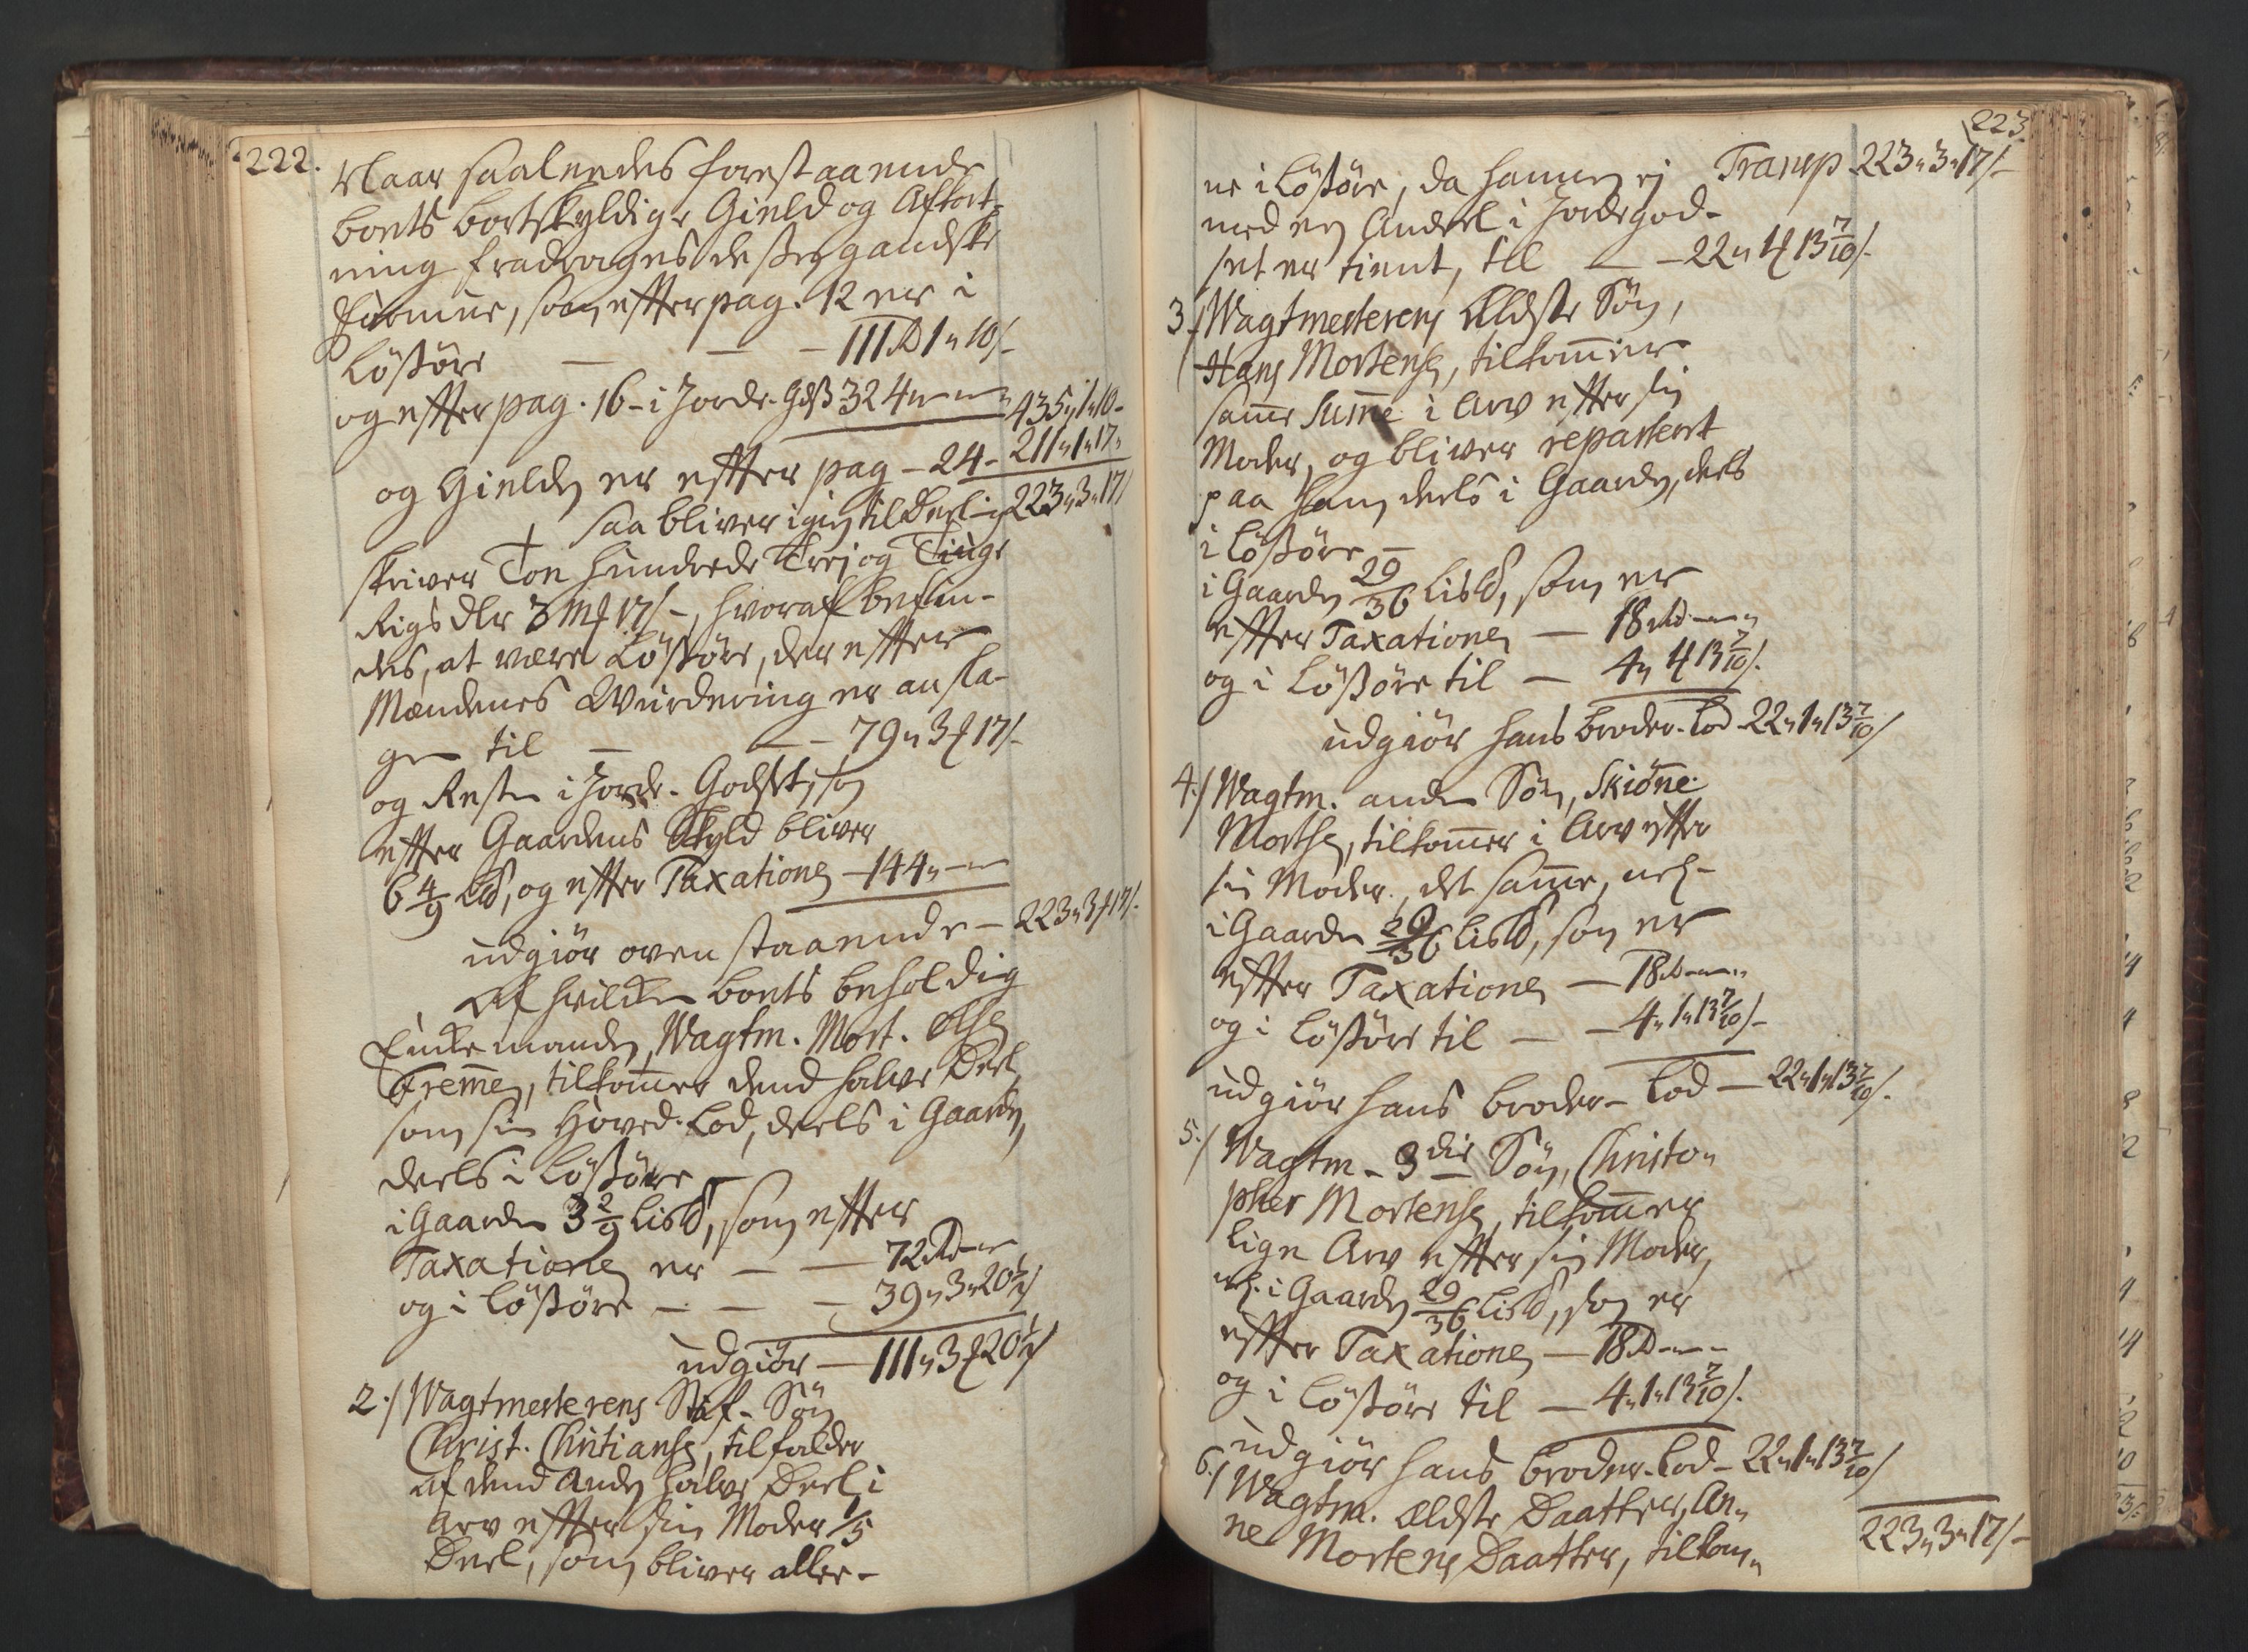 222.
Naar saaledes forestaaende
boets bortskyldige Gield og Afkort-
ning fradrages desßen gandske
Formue, som effter pag. 12 er i
Lösßöre — — — 111 Rd 1 " 10 /-
og effter pag. 16 - i Jorde-Godß 324 " - " - " 435 " 1 " 10 -
og Gielden er effter pag - 24 - 211 " 1 " 17 "
saa bliver igien til Deeling 223 " 3 " 17 /
skriver Too Hundrede Trej og Tiuge
Rigsdlr 3 Mf 17 /-, hvoraf befin-
des, at være Lösßöre, der effter
Mændenes Wurdering er ansla-
gen til — — — 79 " 3 f 17 /-
og Resten i Jorde-Godset, som
effter Gaardens Skyld bliver
6 4/9 Ld, og effter Taxationen — 144 " - " -
udgiör ovenstaaende — 223 " 3 f 17 /-
Af hvilken boets beholdig
Enkemanden, Wagtm. Mort. Olsen
Fremen, tilkommer dend halve Deel,
som sin Hoved-Lod, deels i Gaarden,
deels i Lösßöre —
i Gaarden 3 2/9 Lisld, som effter
Taxationen er — — 72 Rd - " -
og i Lösßöre — — — 39 " 3 " 20 1/2 /
udgiör — 111 " 3 f 20 1/2 /
2./ Wagtmesterens Stif-Sön
Christ. Christiansen, tilfalder
af dend anden halve Deel i
Arv effter sin Moder 1/5
Deel, som bliver alle-
223
ne i Lösßöre, da hannem ej Transp 223 " 3 " 17 /-
med en Andeel i Jordegod-
set er tient, til — — 22 " 1 f 13 7/10 /-
3./ Wagtmesterens Ældste Sön,
Hans Mortensen, tilkommer
samme Summe i Arv effter sin
Moder, og bliver repartert
paa ham deels i Gaarden, deels
i Lösßöre —
i Gaarden 29/36 Lisld, som er
effter Taxationen — 18 Rd - " - "
og i Lösßöre til — 4 " 1 f 13 7/10 /-
udgiör hans broder-Lod - 22 " 1 " 13 7/10 /
4./ Wagtm. anden Sön, Skiönne
Mortsen, tilkommer i Arv effter
sin Moder, det samme, nel-
i Gaarden 29/36 Lisld, som er
effter Taxationen — 18 Rd - " - "
og i Lösßöre til — — 4 " 1 " 13 7/10 /-
udgiör hans broder-Lod — 22 " 1 " 13 7/10 /-
5./ Wagtm - 3die Sön, Christo-
pher Mortensen, tilkommer
lige Arv effter sin Moder,
nel. i Gaarden 29/36 Lisld, som er
effter Taxationen — 18 Rd - " -
og i Lösßöre til — 4 " 1 " 13 7/10 /-
udgiör hans broder-Lod - 22 " 1 " 13 7/10 /
6./ Wagtm. ældste Daatter, An-
ne Mortens Daatter, tilkom- 223 " 3 " 17 /-